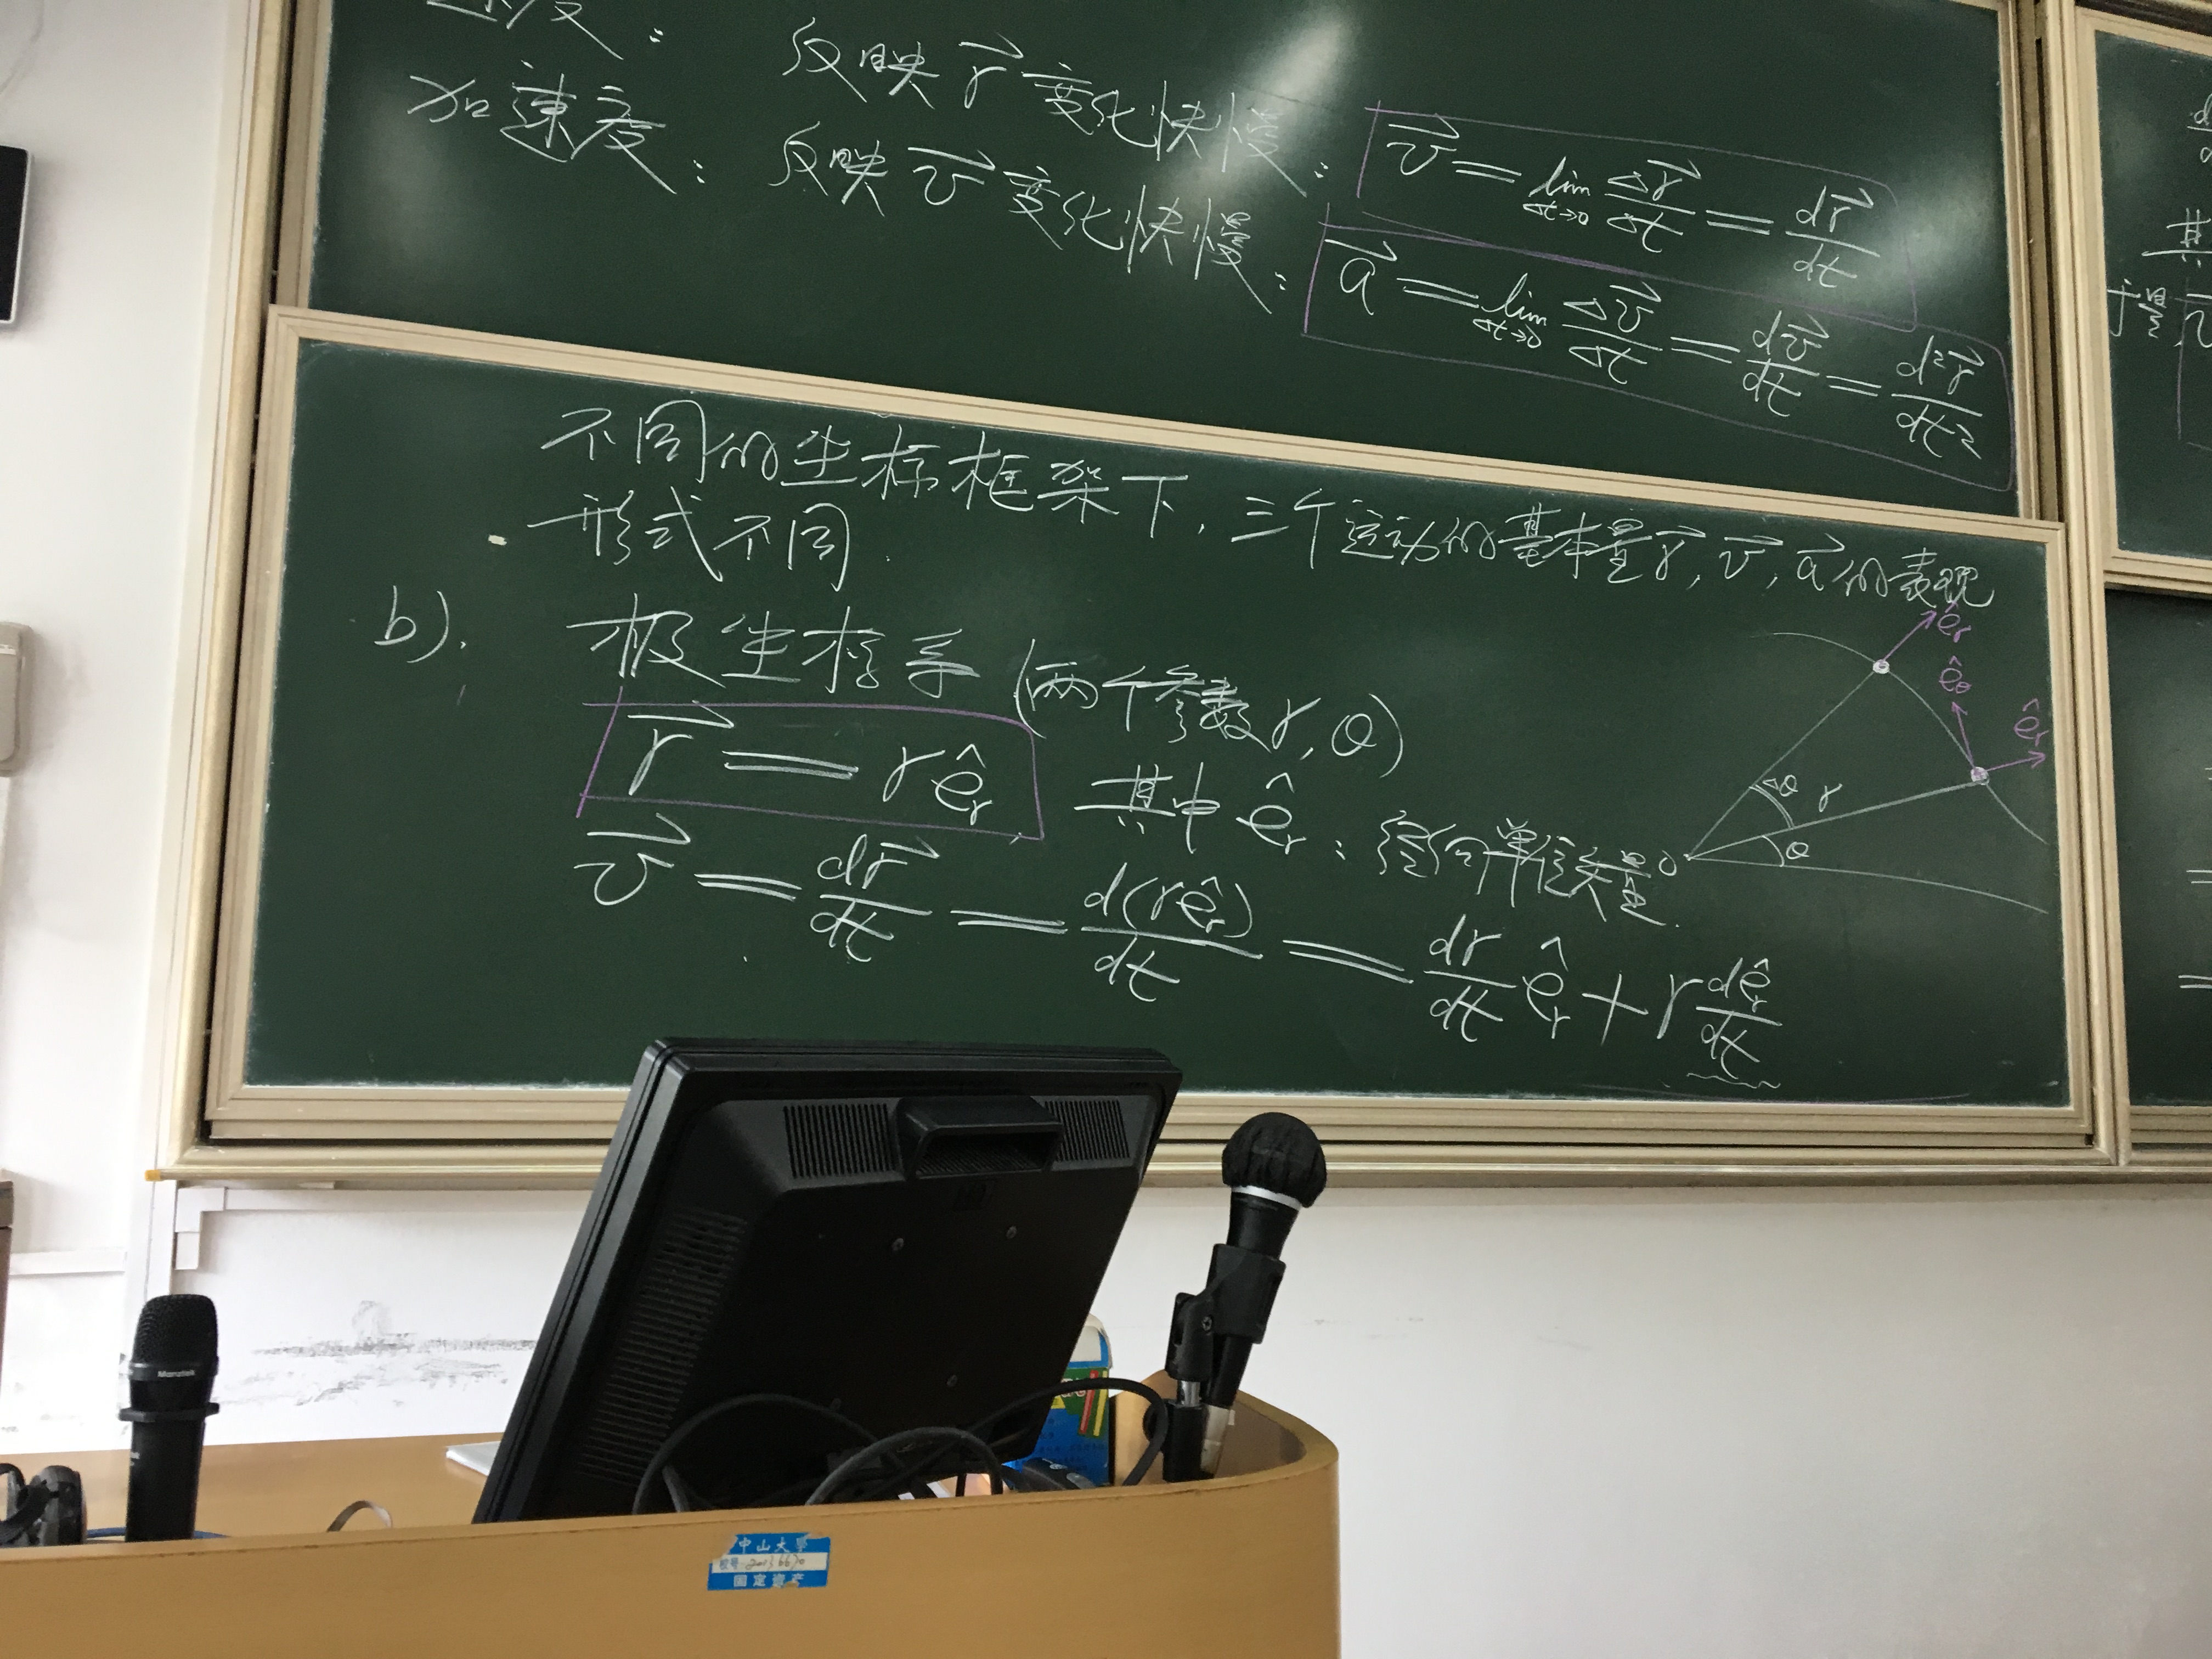 速度: 反映 r⃗ 变化快慢: v⃗ = lim Δt→0 Δr⃗/Δt = dr⃗/dt
加速度: 反映 v⃗ 变化快慢: a⃗ = lim Δt→0 Δv⃗/Δt = dv⃗/dt = d²r⃗/dt²
不同的坐标框架下, 三个运动的基本量 r⃗, v⃗, a⃗ 的表现
形式不同.
b). 极坐标系 (两个参数 r, θ)
r⃗ = r ê_r 其中 ê_r: 径向单位矢量.
v⃗ = dr⃗/dt = d(r ê_r)/dt = dr/dt ê_r + r dê_r/dt
ê_r
ê_θ
ê_r
Δθ r
O θ
其
Manztek
中山大学
国定资产